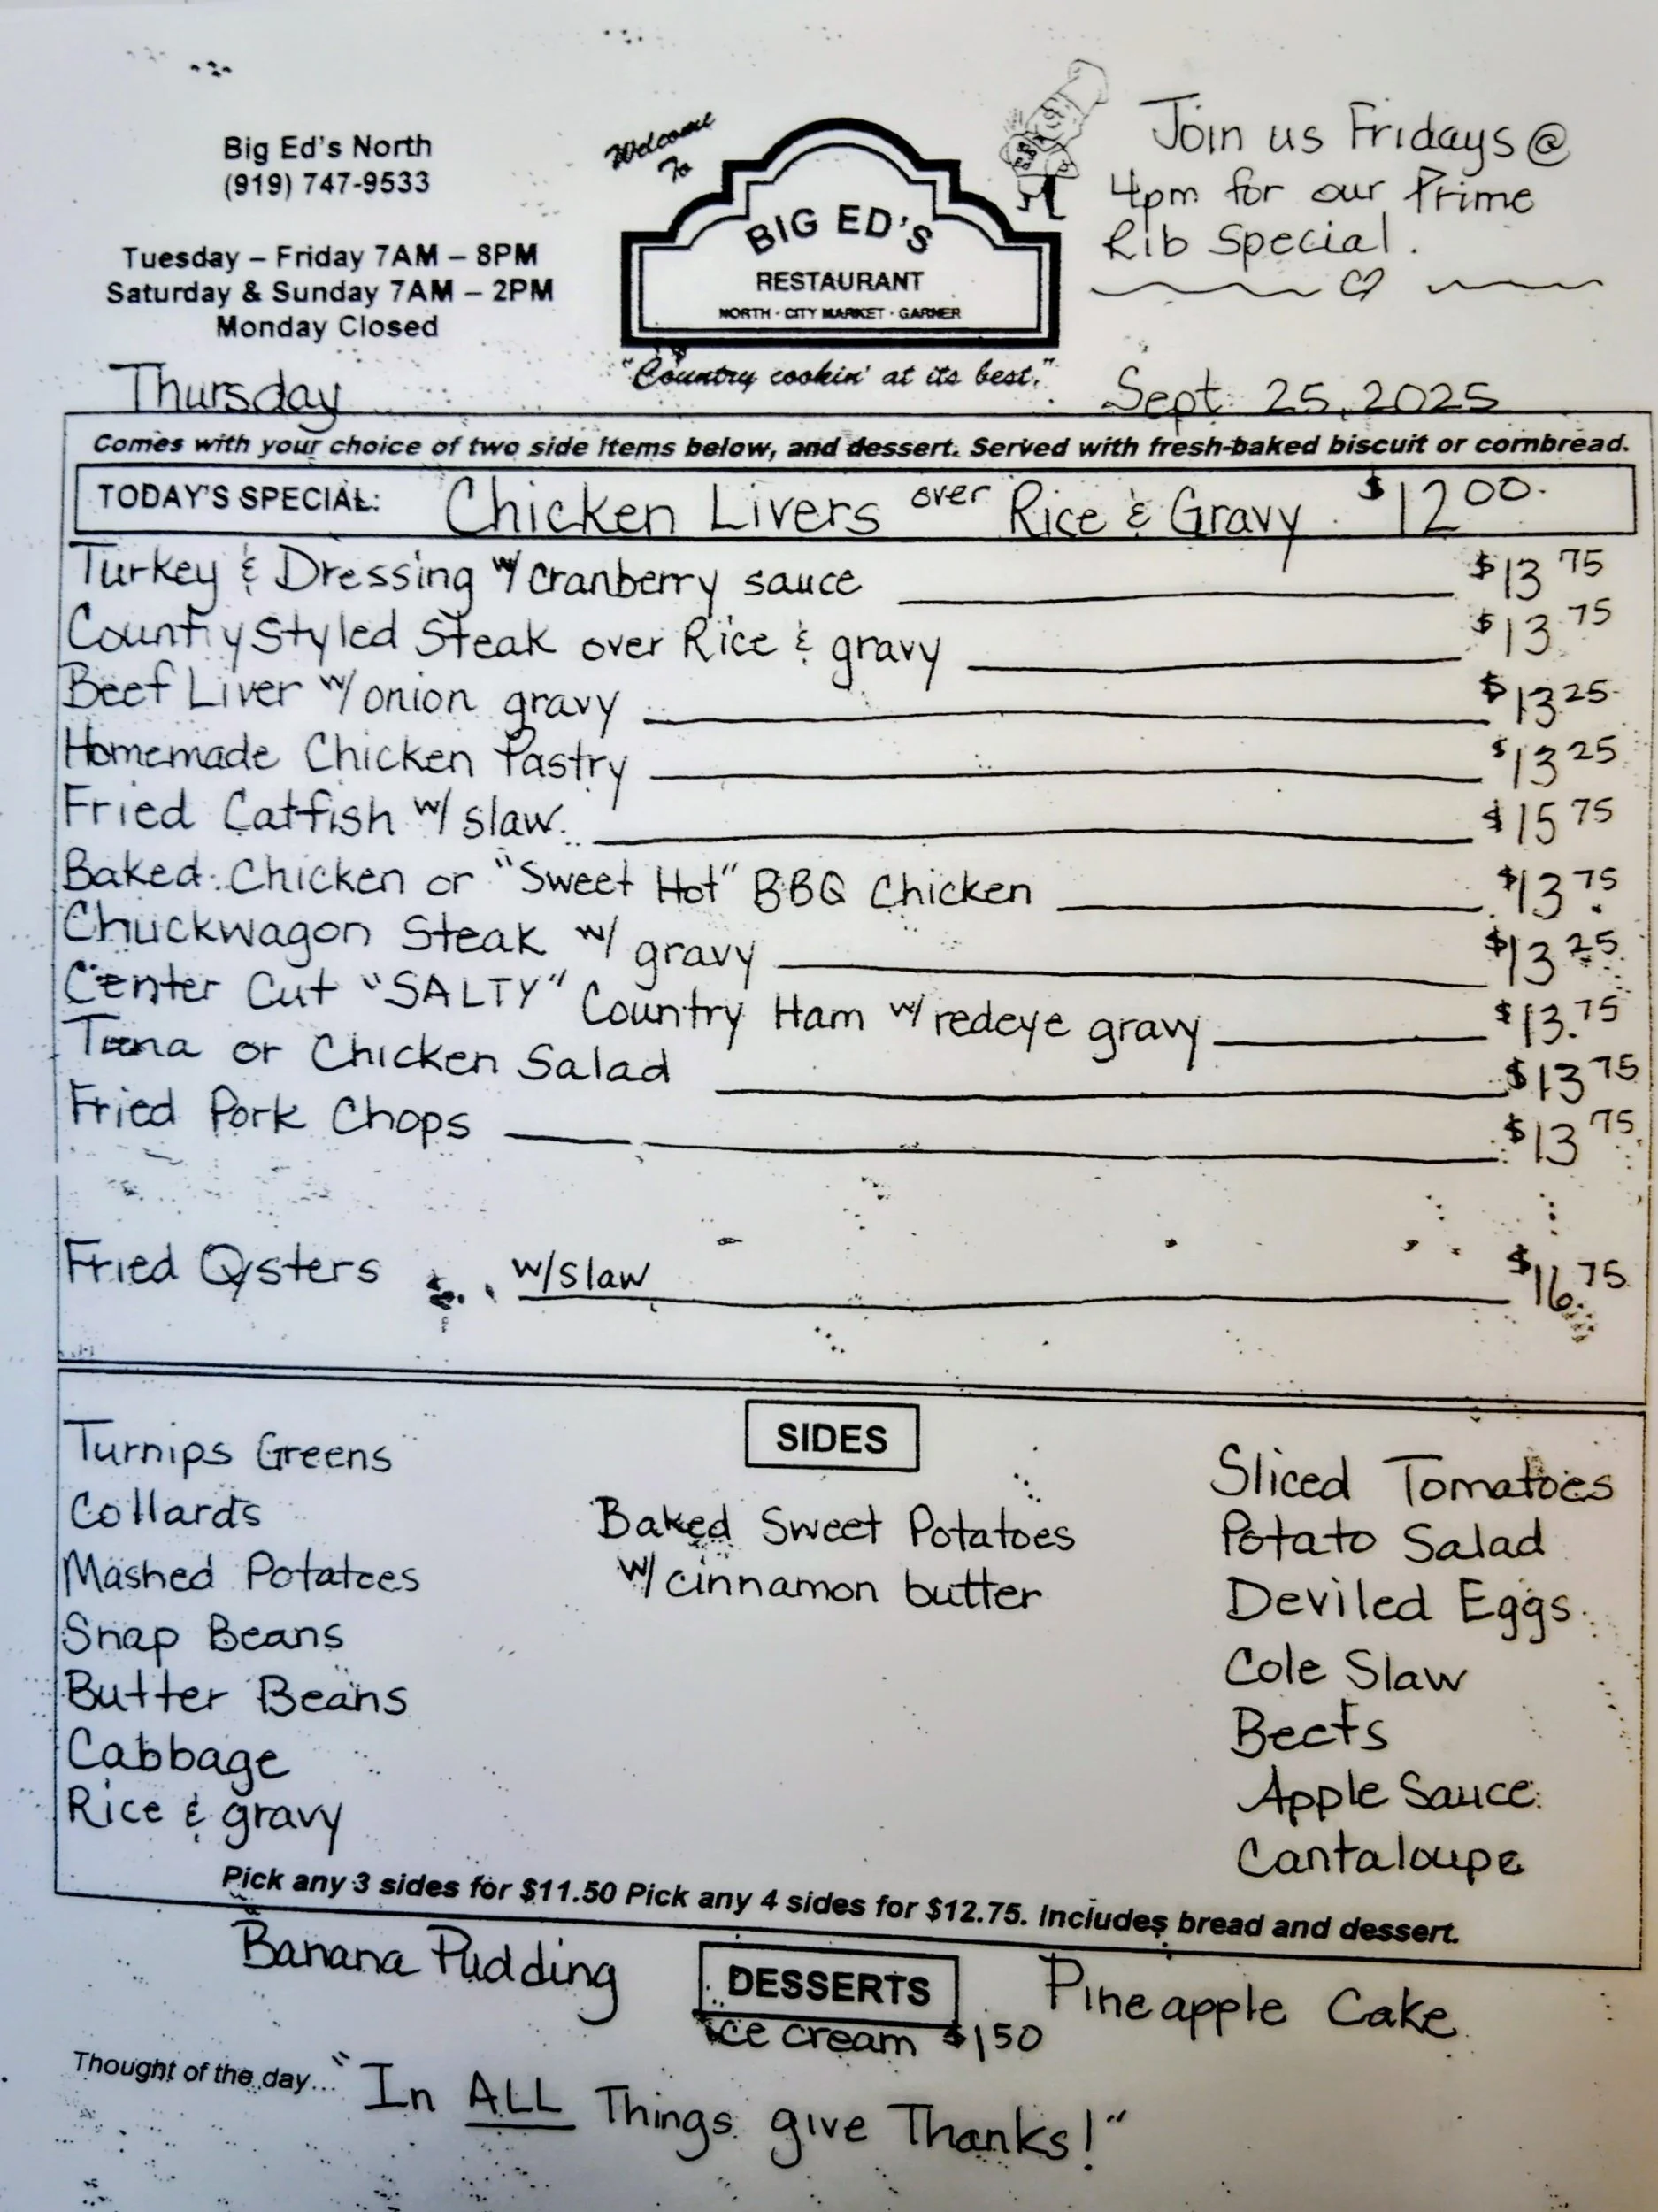 Big Ed's North
(919) 747-9533
Tuesday – Friday 7AM – 8PM
Saturday & Sunday 7AM – 2PM
Monday Closed
Welcome
To
BIG ED'S
RESTAURANT
NORTH - CITY MARKET - GARNER
"Country cookin' at its best."
Join us Fridays @
4pm for our Prime
Rib Special.
Thursday
Sept. 25, 2025
Comes with your choice of two side items below, and dessert. Served with fresh-baked biscuit or cornbread.
TODAY'S SPECIAL: Chicken Livers over Rice & Gravy $12.00
Turkey & Dressing w/ cranberry sauce $13 75
Country Styled Steak over Rice & gravy $13 75
Beef Liver w/ onion gravy $13 25
Homemade Chicken Pastry $13 25
Fried Catfish w/ slaw $15 75
Baked Chicken or "Sweet Hot" BBQ Chicken $13.75
Chuckwagon Steak w/ gravy $13 25
Center Cut "SALTY" Country Ham w/ redeye gravy $13.75
Tuna or Chicken Salad $13 75
Fried Pork Chops $13 75
Fried Oysters w/slaw $16.75
SIDES
Turnips Greens
Collards
Mashed Potatoes
Snap Beans
Butter Beans
Cabbage
Rice & gravy
Baked Sweet Potatoes
w/ cinnamon butter
Sliced Tomatoes
Potato Salad
Deviled Eggs
Cole Slaw
Beets
Apple Sauce
Cantaloupe
Pick any 3 sides for $11.50 Pick any 4 sides for $12.75. Includes bread and dessert.
DESSERTS
Banana Pudding
Ice cream $1 50
Pineapple Cake
Thought of the day... "In ALL Things give Thanks!"